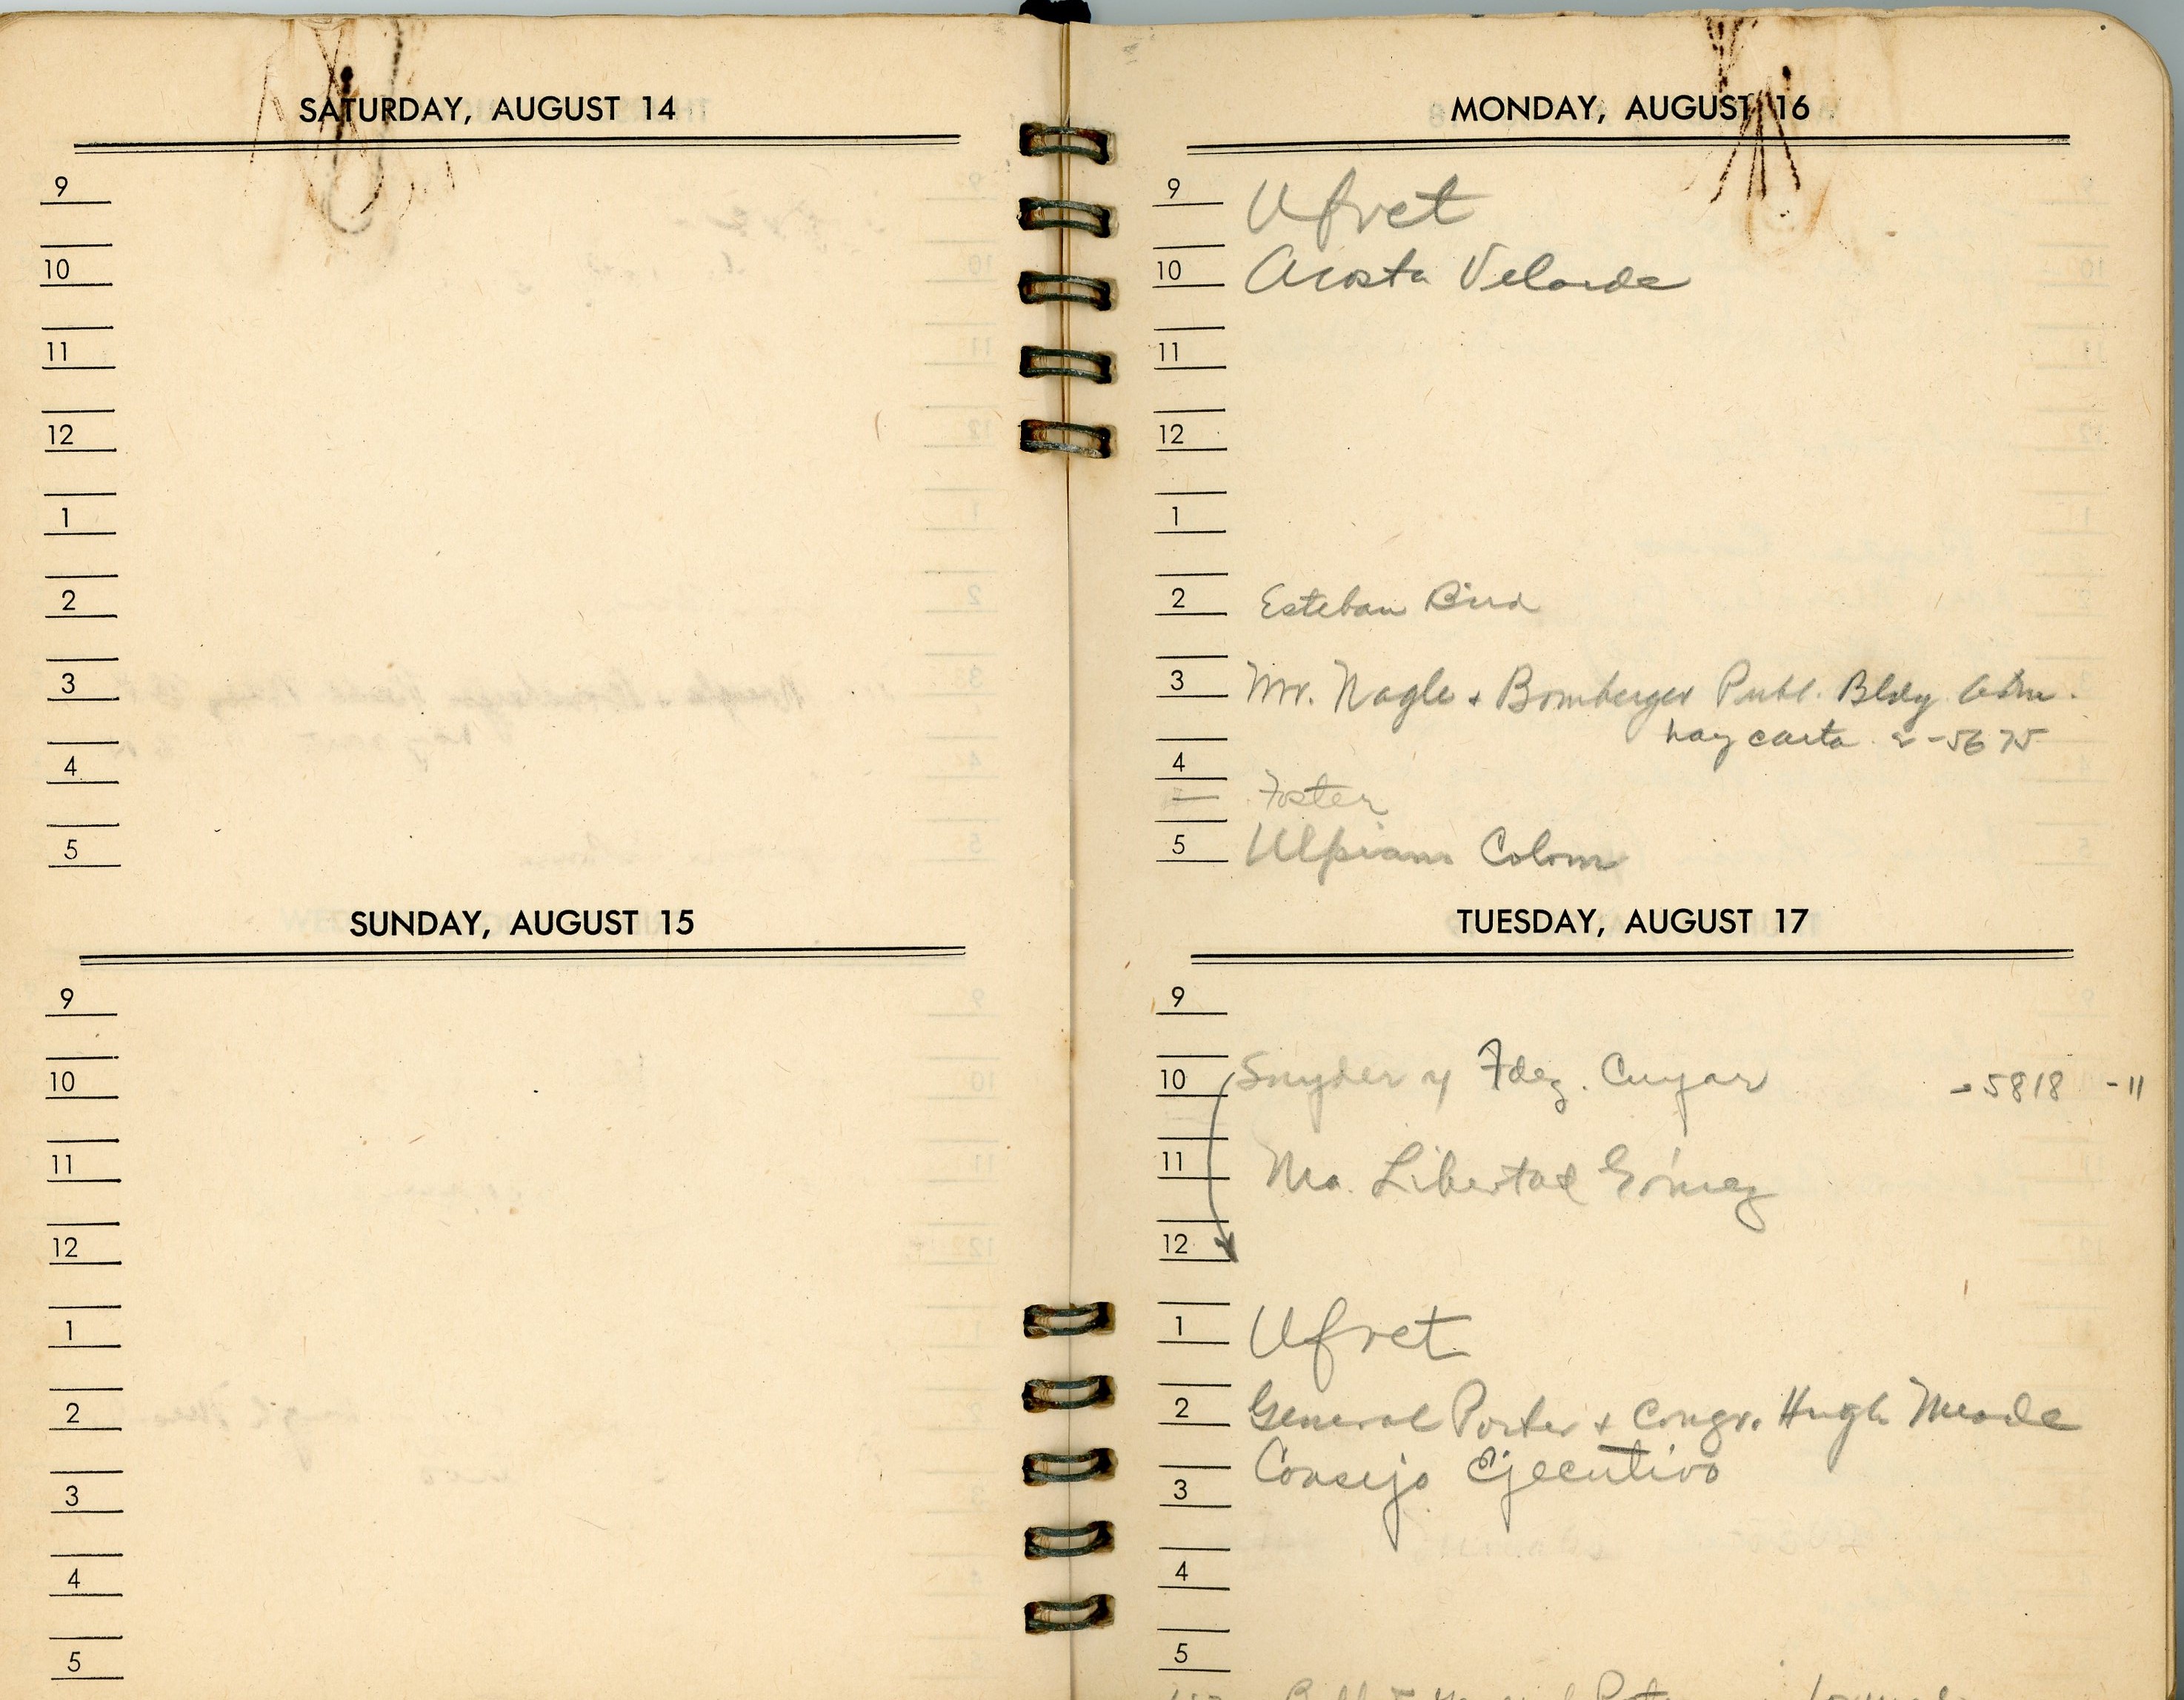 SATURDAY, AUGUST 14
9
10
11
12
1
2
3
4
5
SUNDAY, AUGUST 15
9
10
11
12
1
2
3
4
5
MONDAY, AUGUST 16
9 Ufret
10 Acosta Velarde
11
12
1
2 Esteban Bird
3 Mr. Nagle + Bomberger Publ. Bldg. Adm.
hay carta 2-5675
4
Foster
5 Ulpiano Colom
TUESDAY, AUGUST 17
9
10 Snyder y Fdez. Cuyar -5818 -11
11 Ma. Libertad Gómez
12
1 Ufret
2 General Porter + Congr. Hugh Meade
Consejo Ejecutivo
3
4
5